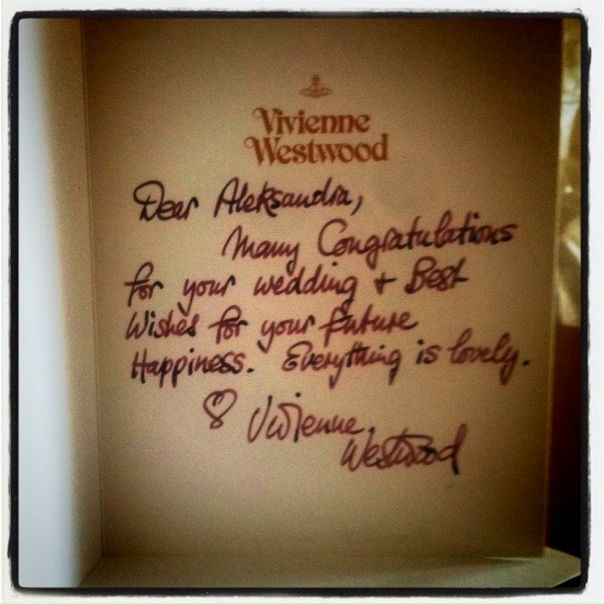 Vivienne
Westwood
Dear Aleksandra,
Many Congratulations
for your wedding + Best
Wishes for your future
Happiness. Everything is lovely.
♡ Vivienne
Westwood